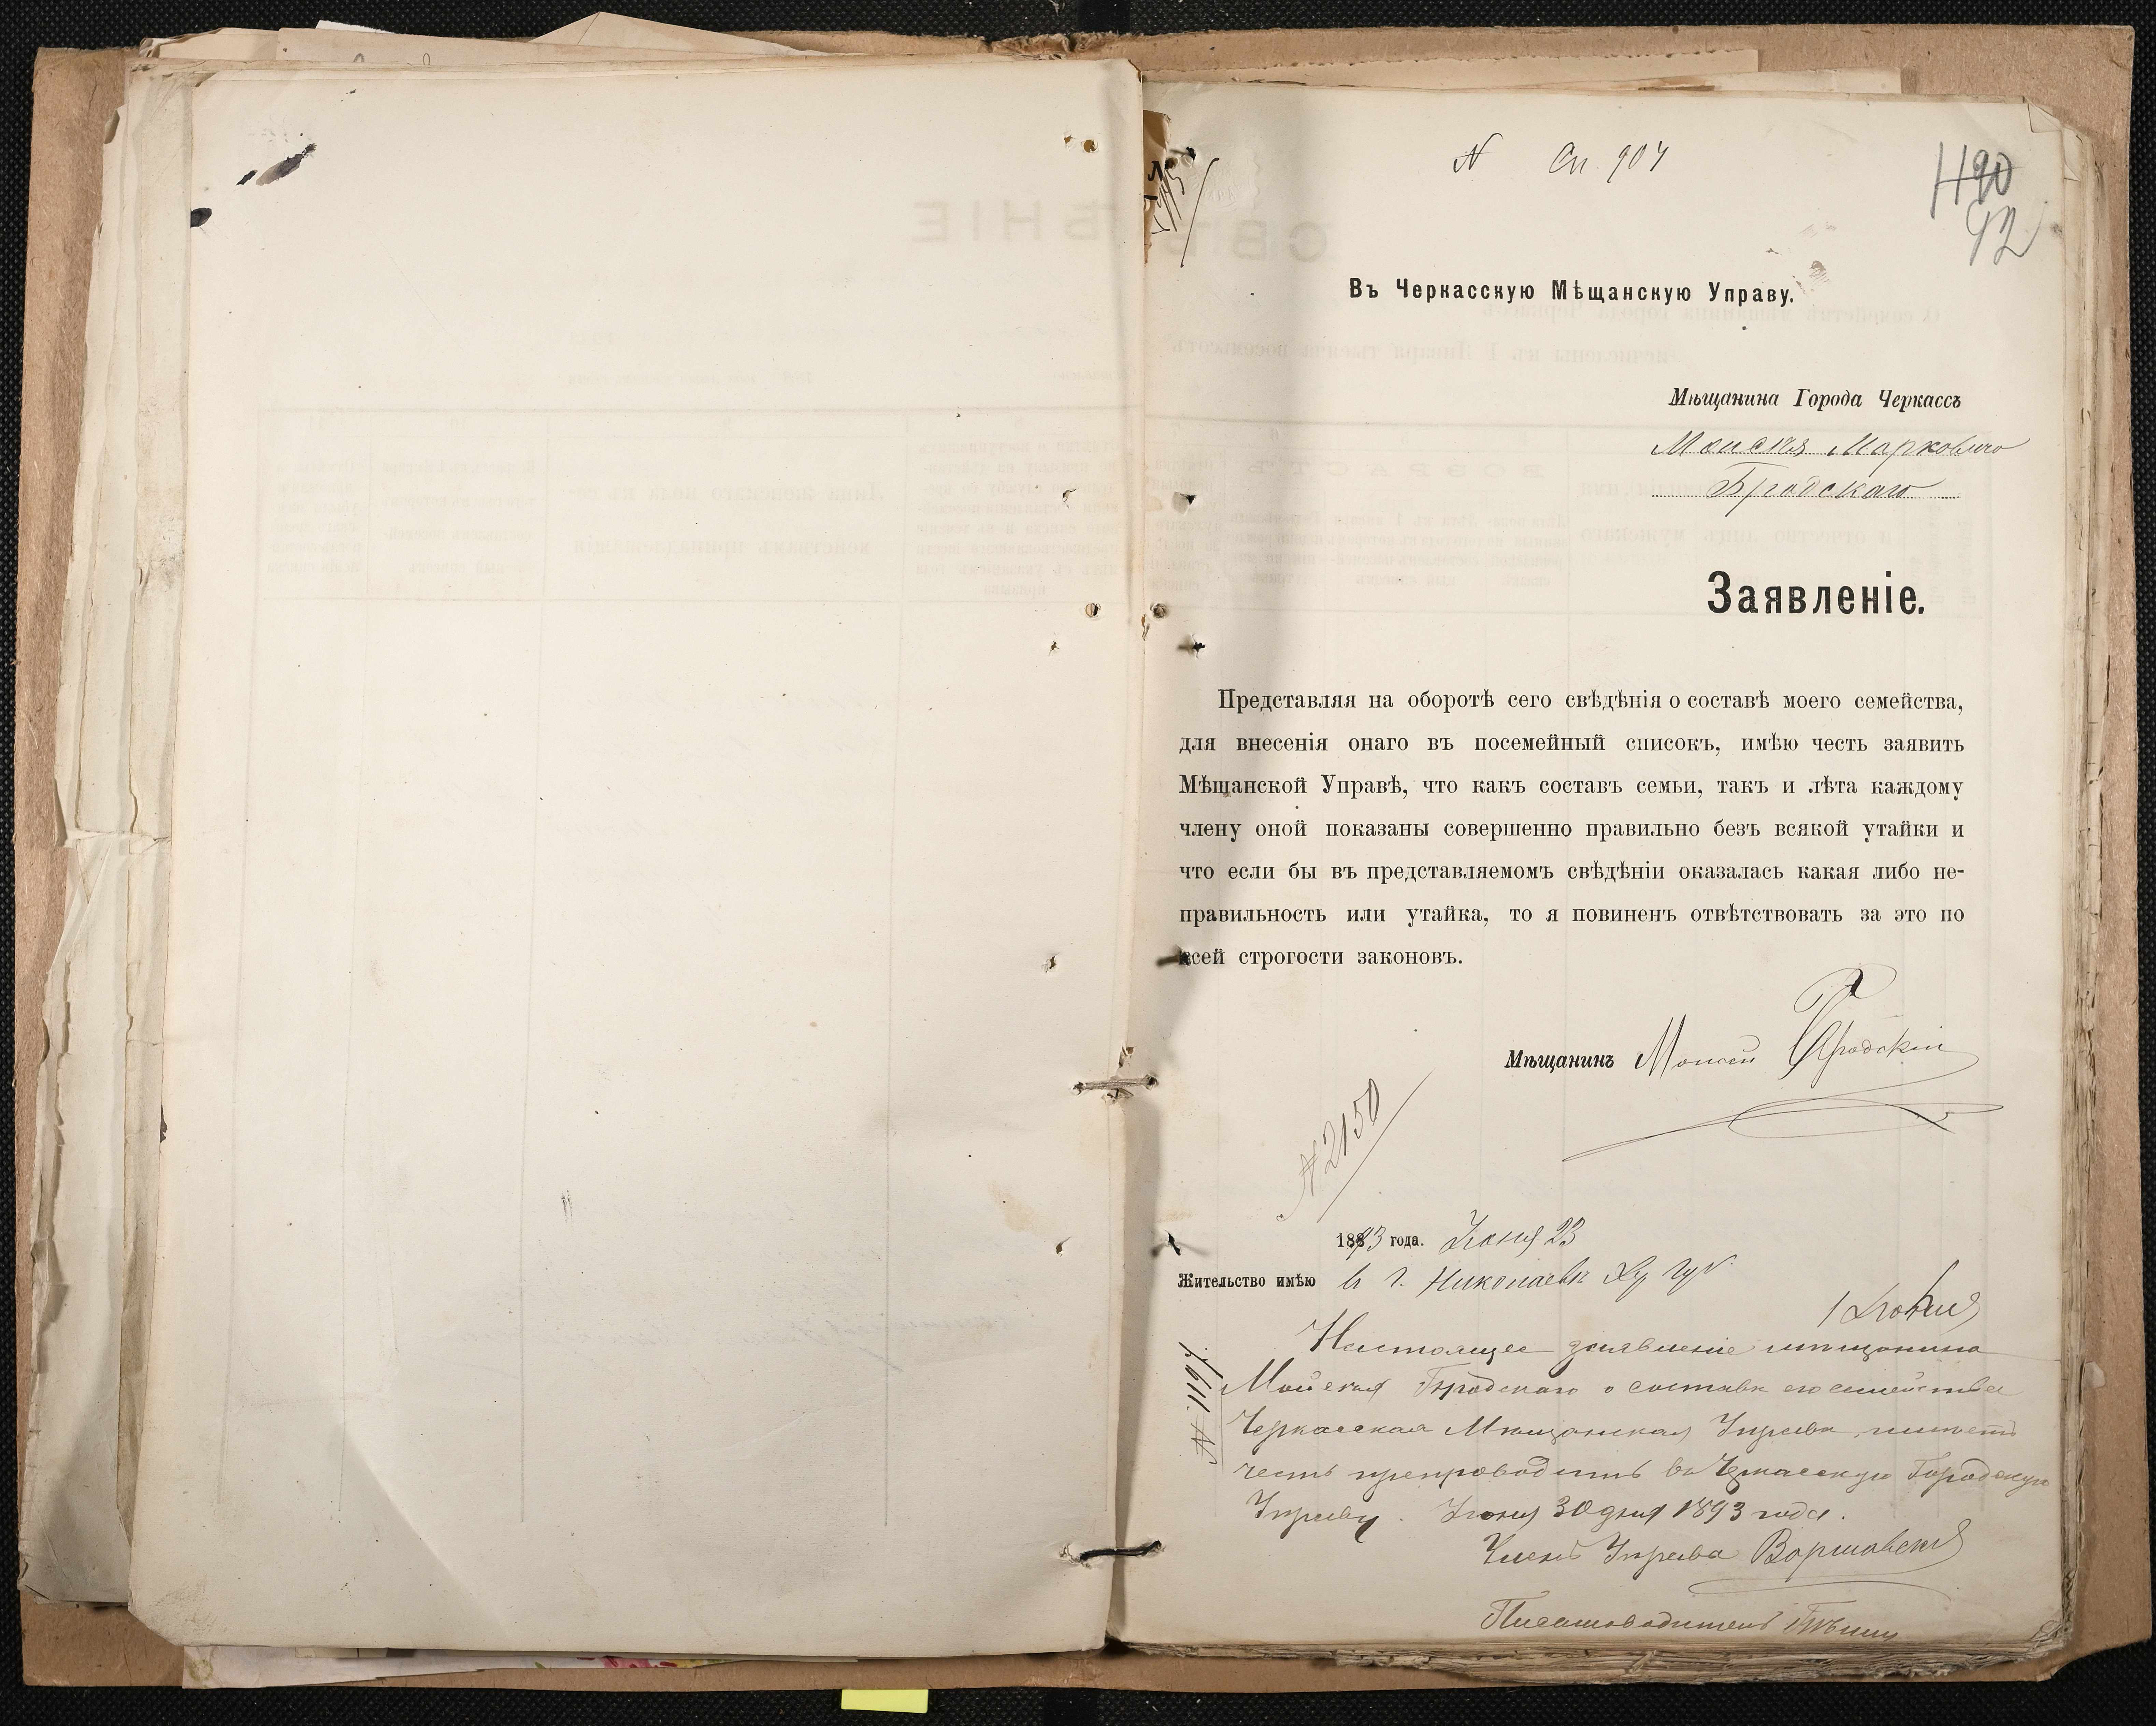 N Сп. 904
490
92
Въ Черкасскую Мѣщанскую Управу.
Мѣщанина Города Черкассъ
Моисея Марковича
Бродскаго
Заявленіе.
Представляя на оборотѣ сего свѣдѣнія о составѣ моего семейства,
для внесенія онаго въ посемейный списокъ, имѣю честь заявить
Мѣщанской Управѣ, что какъ составъ семьи, такъ и лѣта каждому
члену оной показаны совершенно правильно безъ всякой утайки и
что если бы въ представляемомъ свѣдѣніи оказалась какая либо не-
правильность или утайка, то я повиненъ отвѣтствовать за это по
всей строгости законовъ.
Мѣщанинъ Моисей Бродскій
N 2150
1893 года. Июня 23
Жительство имѣю в г. Николаевѣ Хер губ.
Настоящее заявленіе мѣщанина
Мойсея Бродскаго о составѣ его семейства
Черкасская Мѣщанская Управа имѣетъ
честь препроводить въ Черкасскую Городскую
Управу. Июня 30 дня 1893 года.
N 1197.
Членъ Управы Варшавскій
Письмоводитель